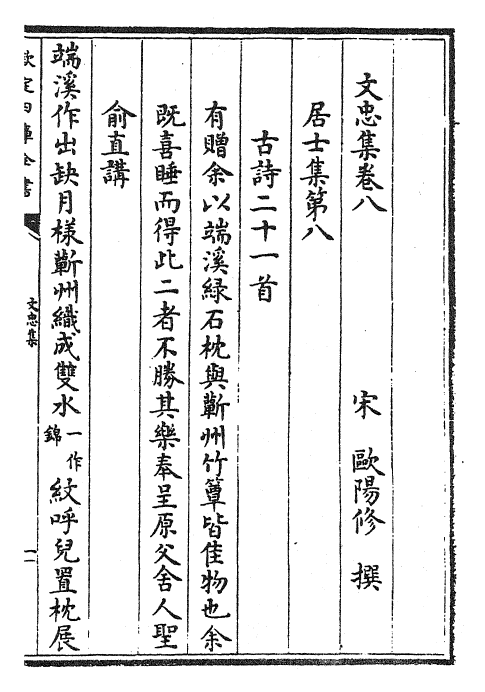 文忠集卷八
宋 歐陽修 撰
居士集第八
古詩二十一首
有贈余以端溪緑石枕與蘄州竹簟皆佳物也余
既喜睡而得此二者不勝其樂奉呈原父舍人聖
俞直講
端溪作出缺月様蘄州織成雙水一作錦紋呼兒置枕展
欽定四庫全書
文忠集
一